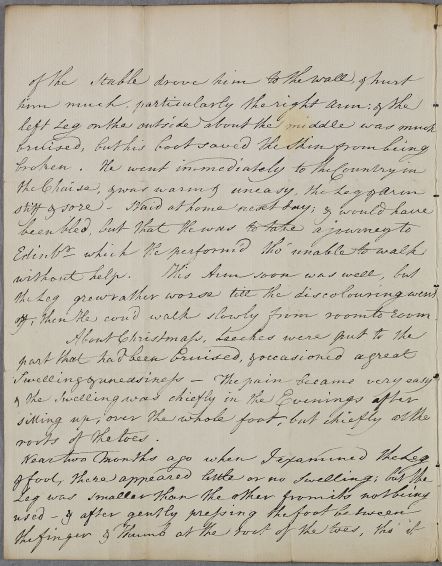 of the Stable drove him to the wall, & hurt
him much, particularly the right arm; & the
left Leg on the outside about the middle was much
bruised, but his boot saved the Skin from being
broken. He went immediately to the Country in
the Chaise, & was warm & uneasy, the Leg & Arm
stiff & sore - Staid at home next day; & would have
been bled, but that He was to take a journey to
Edinbr. which He performed tho' unable to walk
without help. This Arm soon was well, but
the Leg grew rather worse till the discolouring went
off, then He coud walk slowly from room to room
About Christmass, Leeches were put to the
part that had been bruised, & occasioned a great
Swelling & uneasiness - The pain became very easy
& the Swelling was chiefly in the Evenings after
sitting up, over the whole foot, but chiefly at the
roots of the toes.
Near two Months ago when I examined the Leg
& foot, there appeared little or no Swelling; but the
Leg was smaller than the other from its nothing
used - & after gently pressing the foot between
the finger & thumb at the root of the toes, tho' it